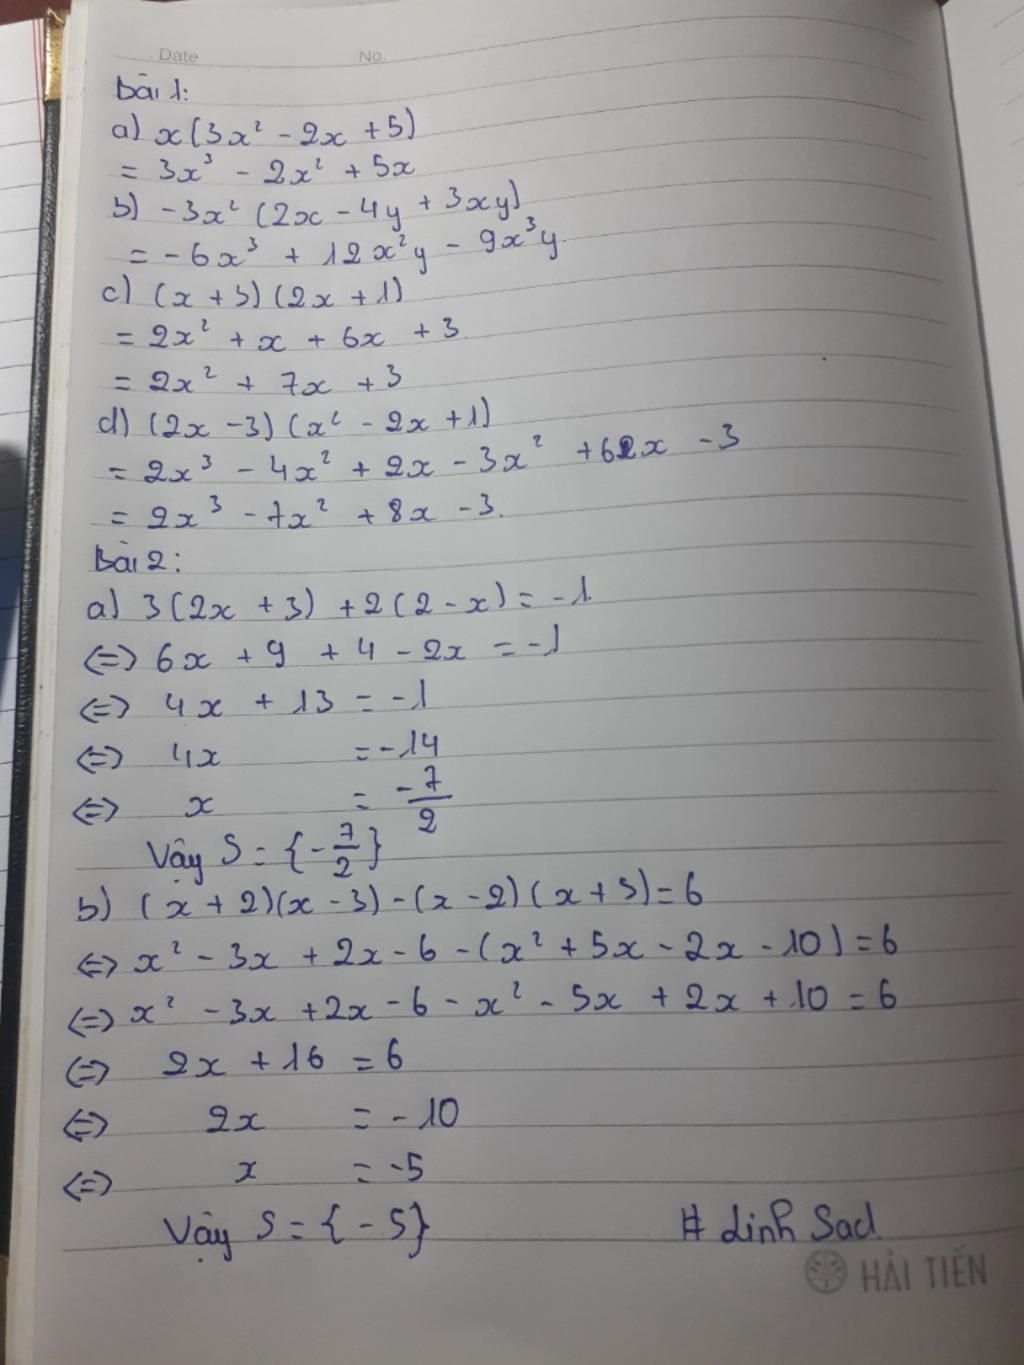 Date No.
Bài 1:
a) x(3x² - 2x + 5)
= 3x³ - 2x² + 5x
b) -3x² (2x - 4y + 3xy)
= -6x³ + 12x²y - 9x³y.
c) (x + 3)(2x + 1)
= 2x² + x + 6x + 3.
= 2x² + 7x + 3
d) (2x - 3)(x² - 2x + 1)
= 2x³ - 4x² + 2x - 3x² + 6x - 3
= 2x³ - 7x² + 8x - 3.
Bài 2:
a) 3(2x + 3) + 2(2 - x) = -1.
<=> 6x + 9 + 4 - 2x = -1
<=> 4x + 13 = -1
<=> 4x = -14
<=> x = -7/2
Vậy S = {-7/2}
b) (x + 2)(x - 3) - (x - 2)(x + 5) = 6
<=> x² - 3x + 2x - 6 - (x² + 5x - 2x - 10) = 6
<=> x² - 3x + 2x - 6 - x² - 5x + 2x + 10 = 6
<=> 2x + 16 = 6
<=> 2x = -10
<=> x = -5
Vậy S = {-5}
# Linh Sad.
HẢI TIẾN